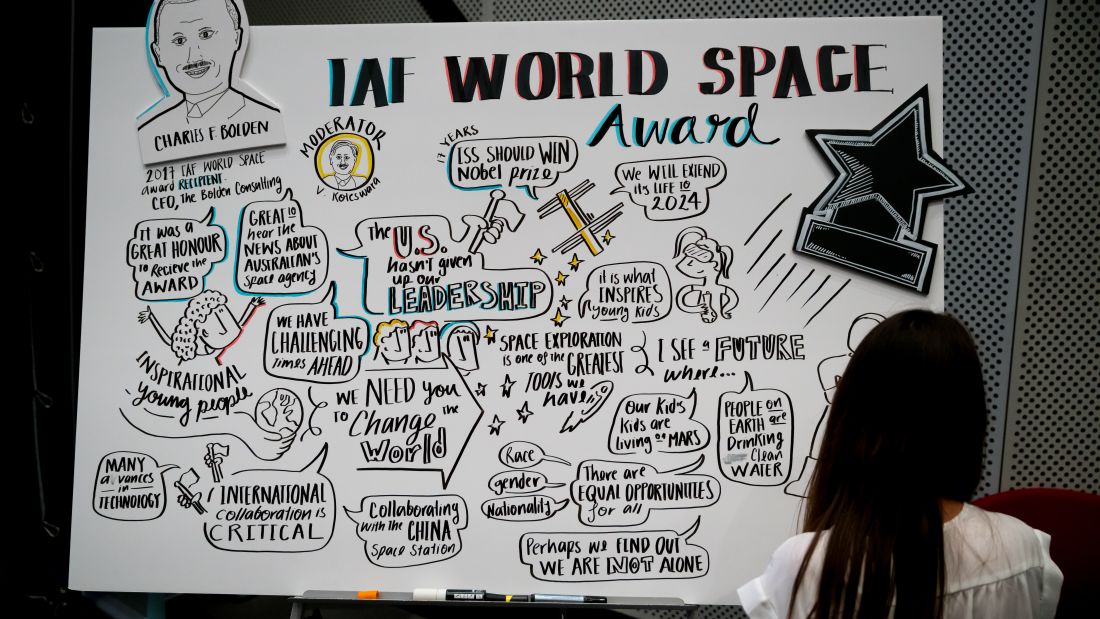 IAF WORLD SPACE
Award
CHARLES F BOLDEN
2017 IAF WORLD SPACE
award RECIPIENT
CEO, The Bolden Consulting
MODERATOR
V. Koteswara
17 YEARS
ISS SHOULD WIN
NOBEL prize
We WILL EXTEND
its LIFE to
2024
It was a
GREAT HONOUR
to Recieve the
AWARD
GREAT to
hear the
NEWS ABOUT
AUSTRALIAN'S
space agency
The U.S.
hasn't given
up our
LEADERSHIP
it is what
INSPIRES
young kids
WE HAVE
CHALLENGING
times AHEAD
INSPIRATIONAL
young people
WE NEED you
TO Change the
World
SPACE EXPLORATION
is one of the GREATEST
TOOLS we
have
I SEE a FUTURE
where...
Our Kids
Kids are
living on MARS
PEOPLE on
EARTH are
Drinking
Clean
WATER
MANY
advances
in
TECHNOLOGY
INTERNATIONAL
collaboration is
CRITICAL
Collaborating
with the CHINA
Space Station
Race
gender
Nationality
There are
EQUAL OPPORTUNITIES
for all
Perhaps we FIND OUT
WE ARE NOT ALONE